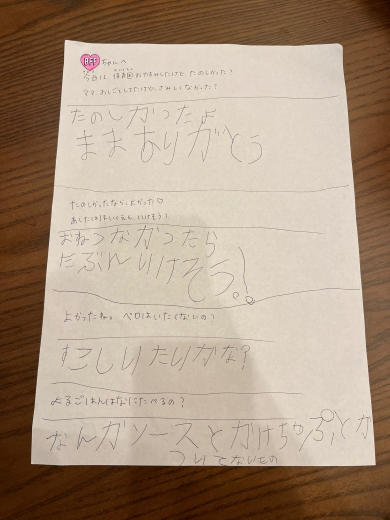 BFF ちゃんへ
今日は 保育園おやすみしたけど たのしかった?
ママ おしごとしてたけど、さみしくなかった?
たのしかったよ
ままありがとう
たのしかったなら、よかった♡
あしたはほいくえん いけそう?
おねつなかったら
たぶんいけそう!
よかったね。 ベロはいたくないの?
すこしいたいかな?
よるごはんはなにたべるの?
なんかソースとかけちゃぷとか
ついてないもの